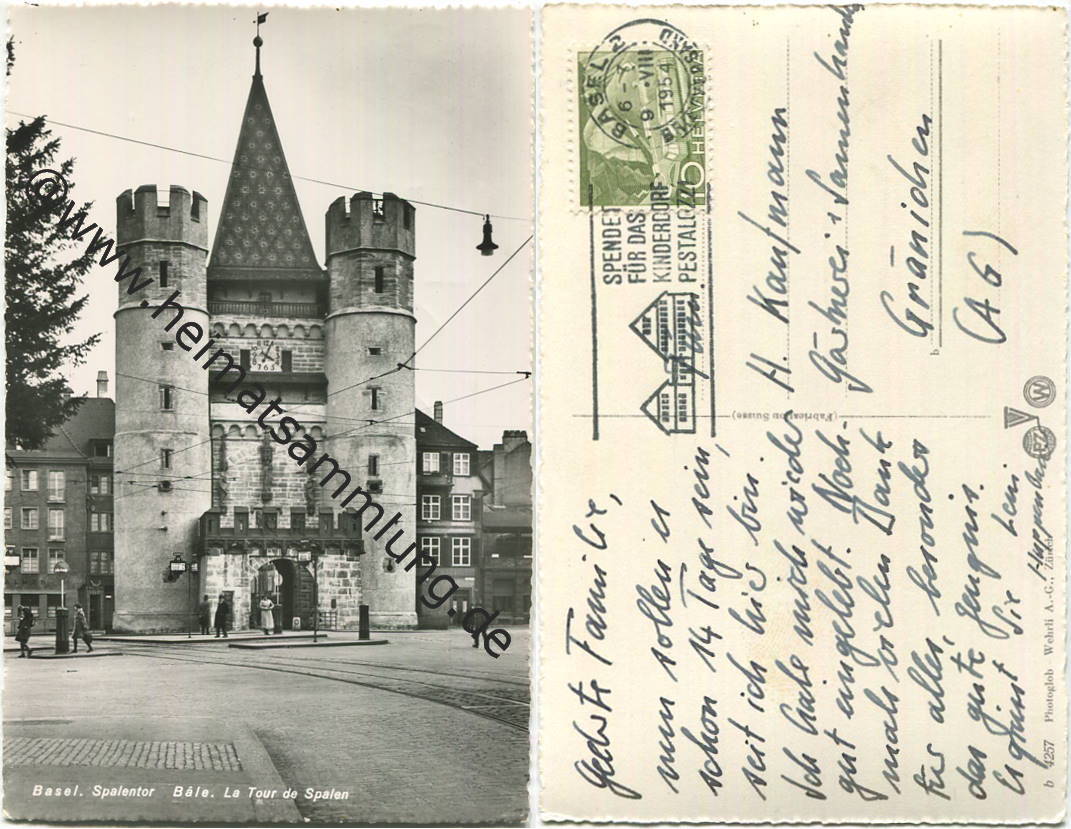 © www.heimatsammlung.de
12
7 6 5
Basel. Spalentor Bâle. La Tour de Spalen
BASEL 2
9. VIII. 1954
10 HELVETIA
SPENDET
FÜR DAS
KINDERDORF
PESTALOZZI
H. Kaufmann
Gärtnerei + Samenhandl
Gränichen
(AG)
b
(Fabrication Suisse)
W
PZ
Geehrte Familie,
nun sollen es
schon 14 Tage sein,
seit ich hier bin.
Ich habe mich wieder
gut eingelebt. Noch-
mals vielen Dank
für alles, besonders
das gute Zeugnis.
Es grüsst Sie
b 4257 Photoglob-Wehrli A.-G., Zürich